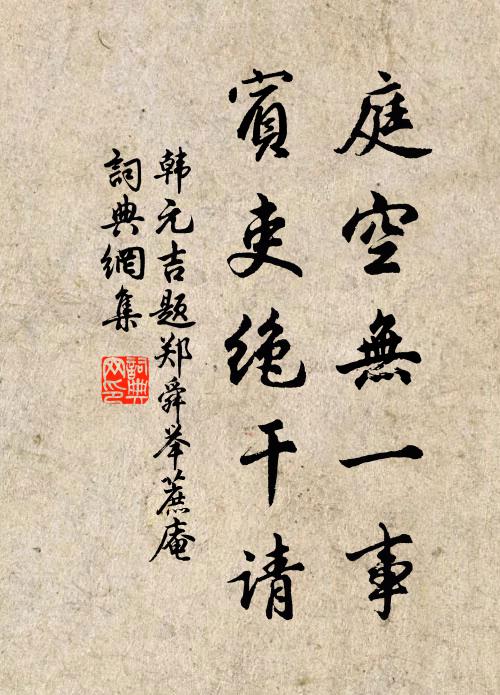 庭空無一事
賓吏绝干请
韩元吉题郑舜举蔗庵
詞典網集
詞典
网印